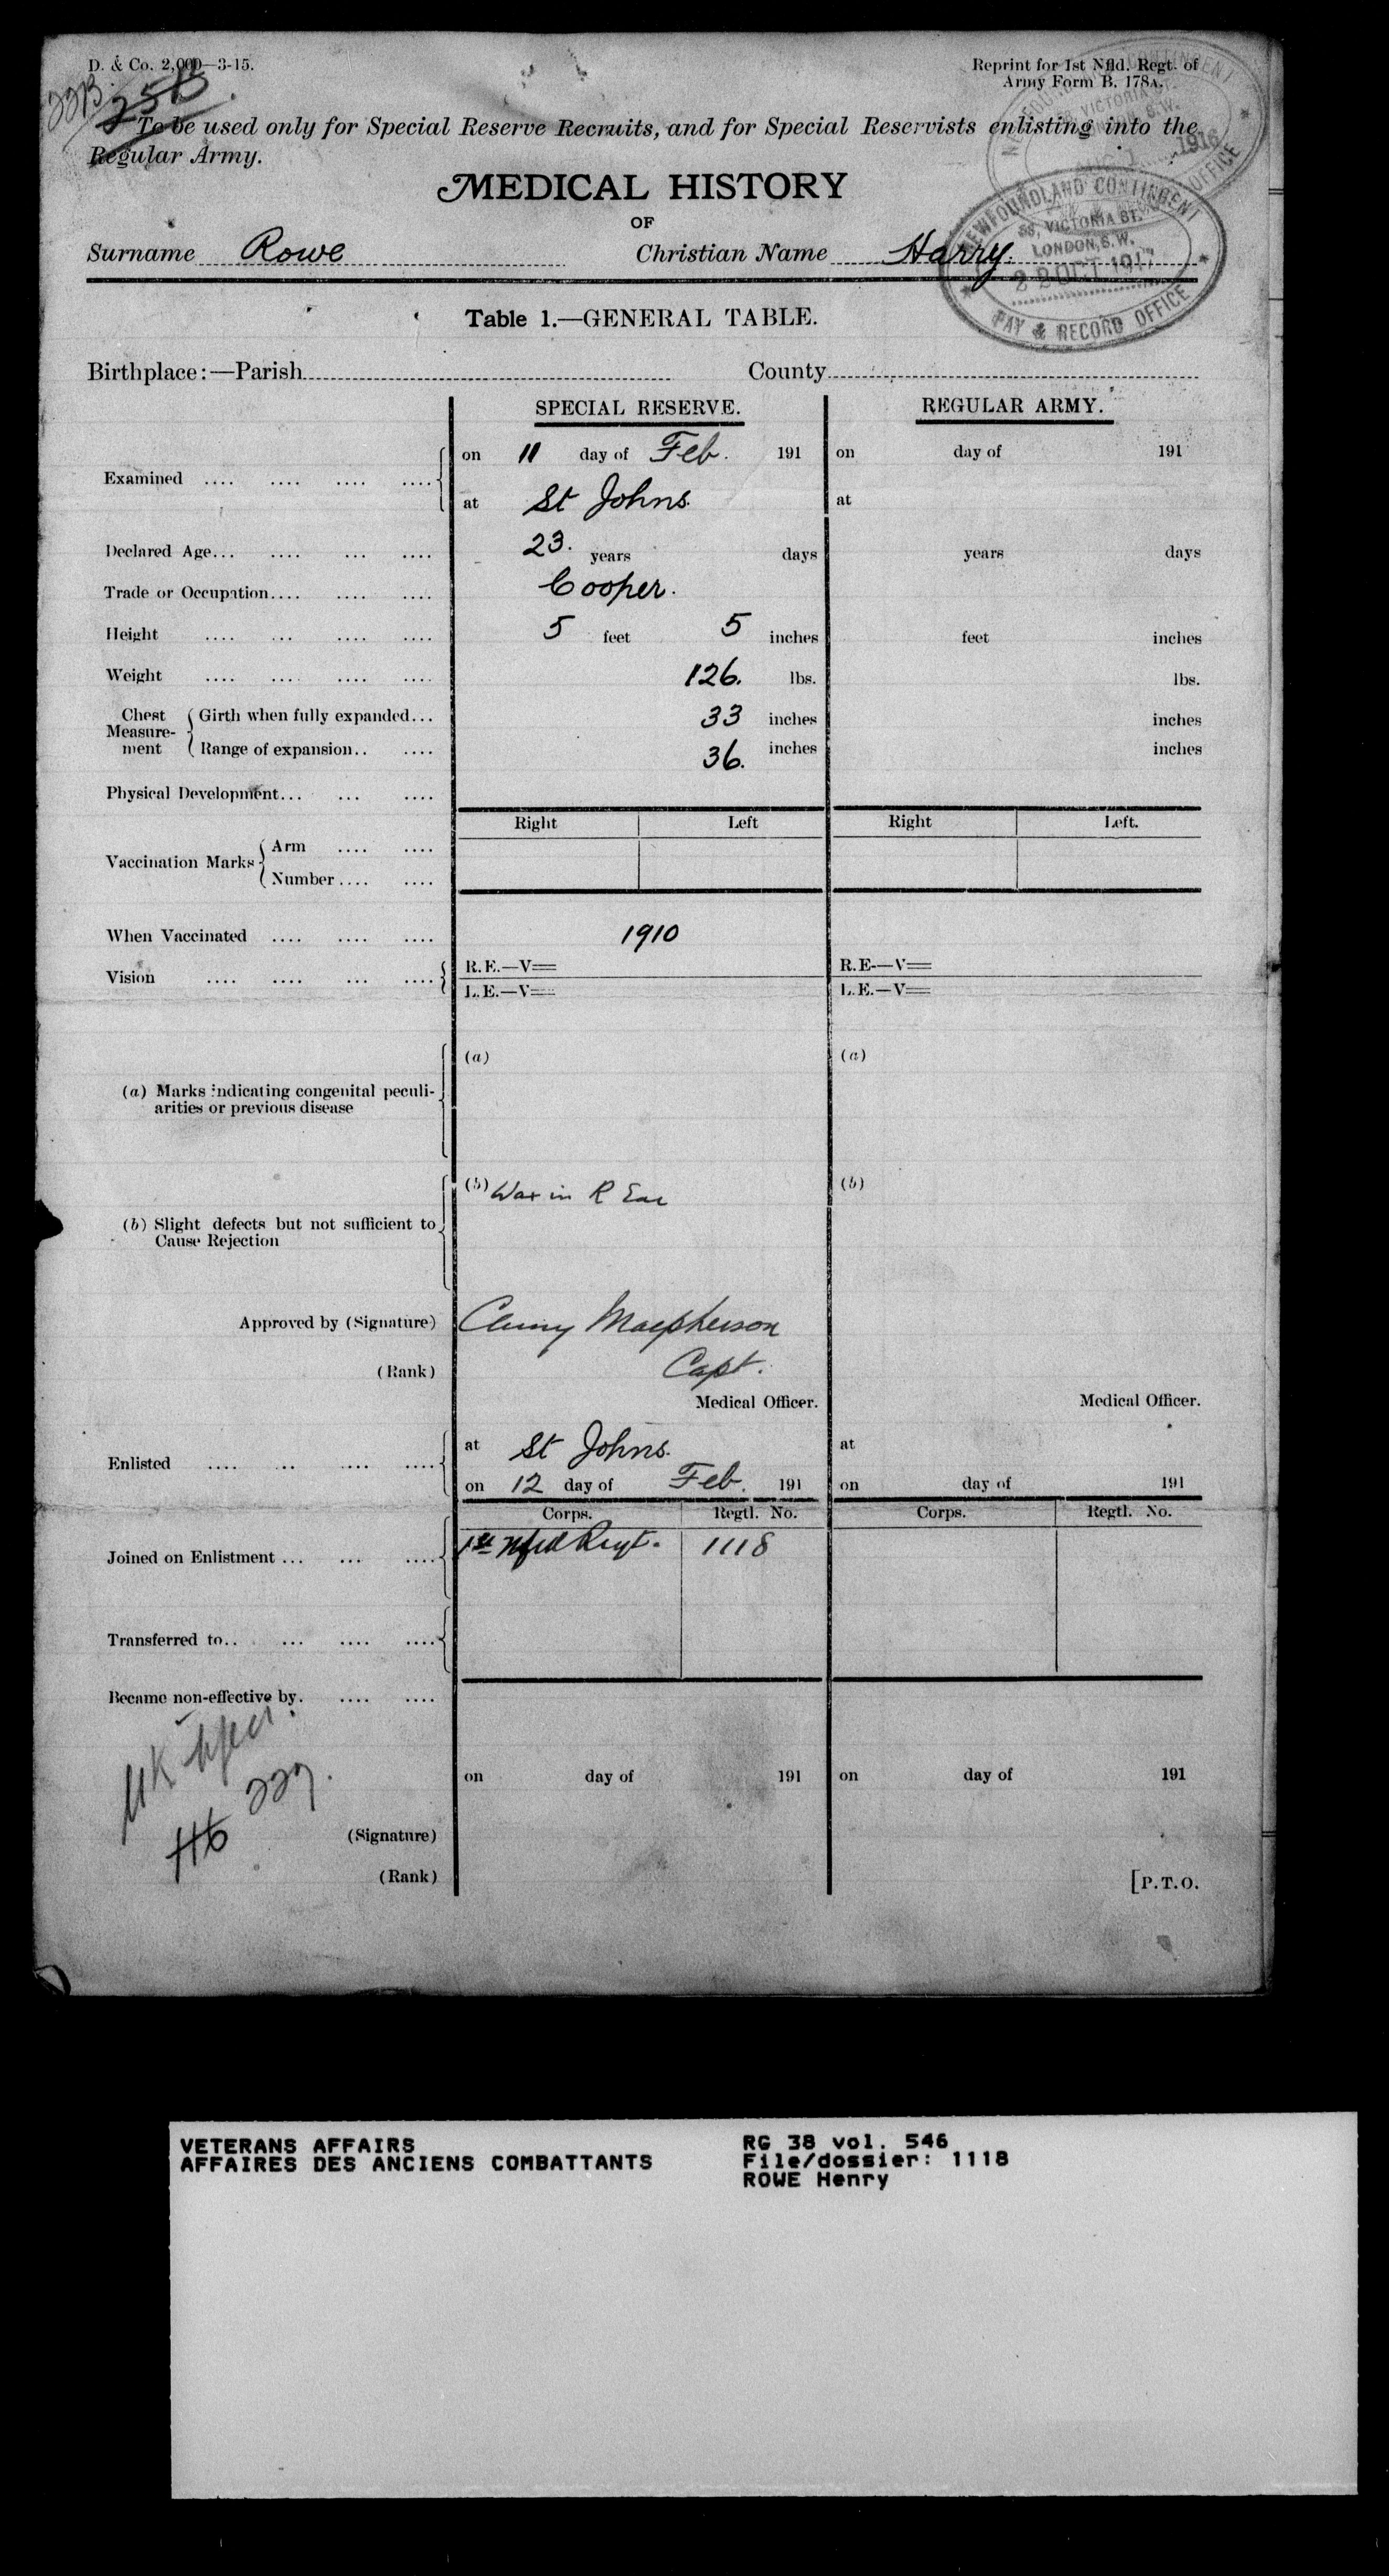 D. & Co. 2,000—3-15.
Reprint for 1st Nfld. Regt. of
Army Form B. 178A.
22B
25B
To be used only for Special Reserve Recruits, and for Special Reservists enlisting into the
Regular Army.
MEDICAL HISTORY
OF
Surname Rowe Christian Name Harry.
NEWFOUNDLAND CONTINGENT
58, VICTORIA ST.
LONDON, S.W.
22 OCT 1917
PAY & RECORD OFFICE
1916
Table 1.—GENERAL TABLE.
Birthplace:—Parish County
SPECIAL RESERVE. REGULAR ARMY.
Examined .... .... .... ....
on 11 day of Feb. 191 on day of 191
at St Johns. at
Declared Age... .... ... .... 23. years days years days
Trade or Occupation.... .... .... Cooper.
Height .... ... .... .... 5 feet 5 inches feet inches
Weight .... .... .... .... 126. lbs. lbs.
Chest Measure-ment
Girth when fully expanded... 33 inches inches
Range of expansion.. .... 36. inches inches
Physical Development... ... ....
Right Left Right Left.
Vaccination Marks
Arm .... ....
Number .... ....
When Vaccinated .... .... .... 1910
Vision .... .... ... ....
R.E.—V= R.E.—V=
L.E.—V= L.E.—V=
(a) (a)
(a) Marks indicating congenital peculi-
arities or previous disease
(b) Wax in R Ear (b)
(b) Slight defects but not sufficient to
Cause Rejection
Approved by (Signature) Cluny Macpherson
(Rank) Capt.
Medical Officer. Medical Officer.
Enlisted .... .. .... ....
at St Johns. at
on 12 day of Feb. 191 on day of 191
Corps. Regtl. No. Corps. Regtl. No.
Joined on Enlistment ... ... .... 1st Nfld Regt. 1118
Transferred to.. ... .... ....
Became non-effective by. .... ....
227.
on day of 191 on day of 191
(Signature)
(Rank)
[P.T.O.
VETERANS AFFAIRS
AFFAIRES DES ANCIENS COMBATTANTS
RG 38 vol. 546
File/dossier: 1118
ROWE Henry